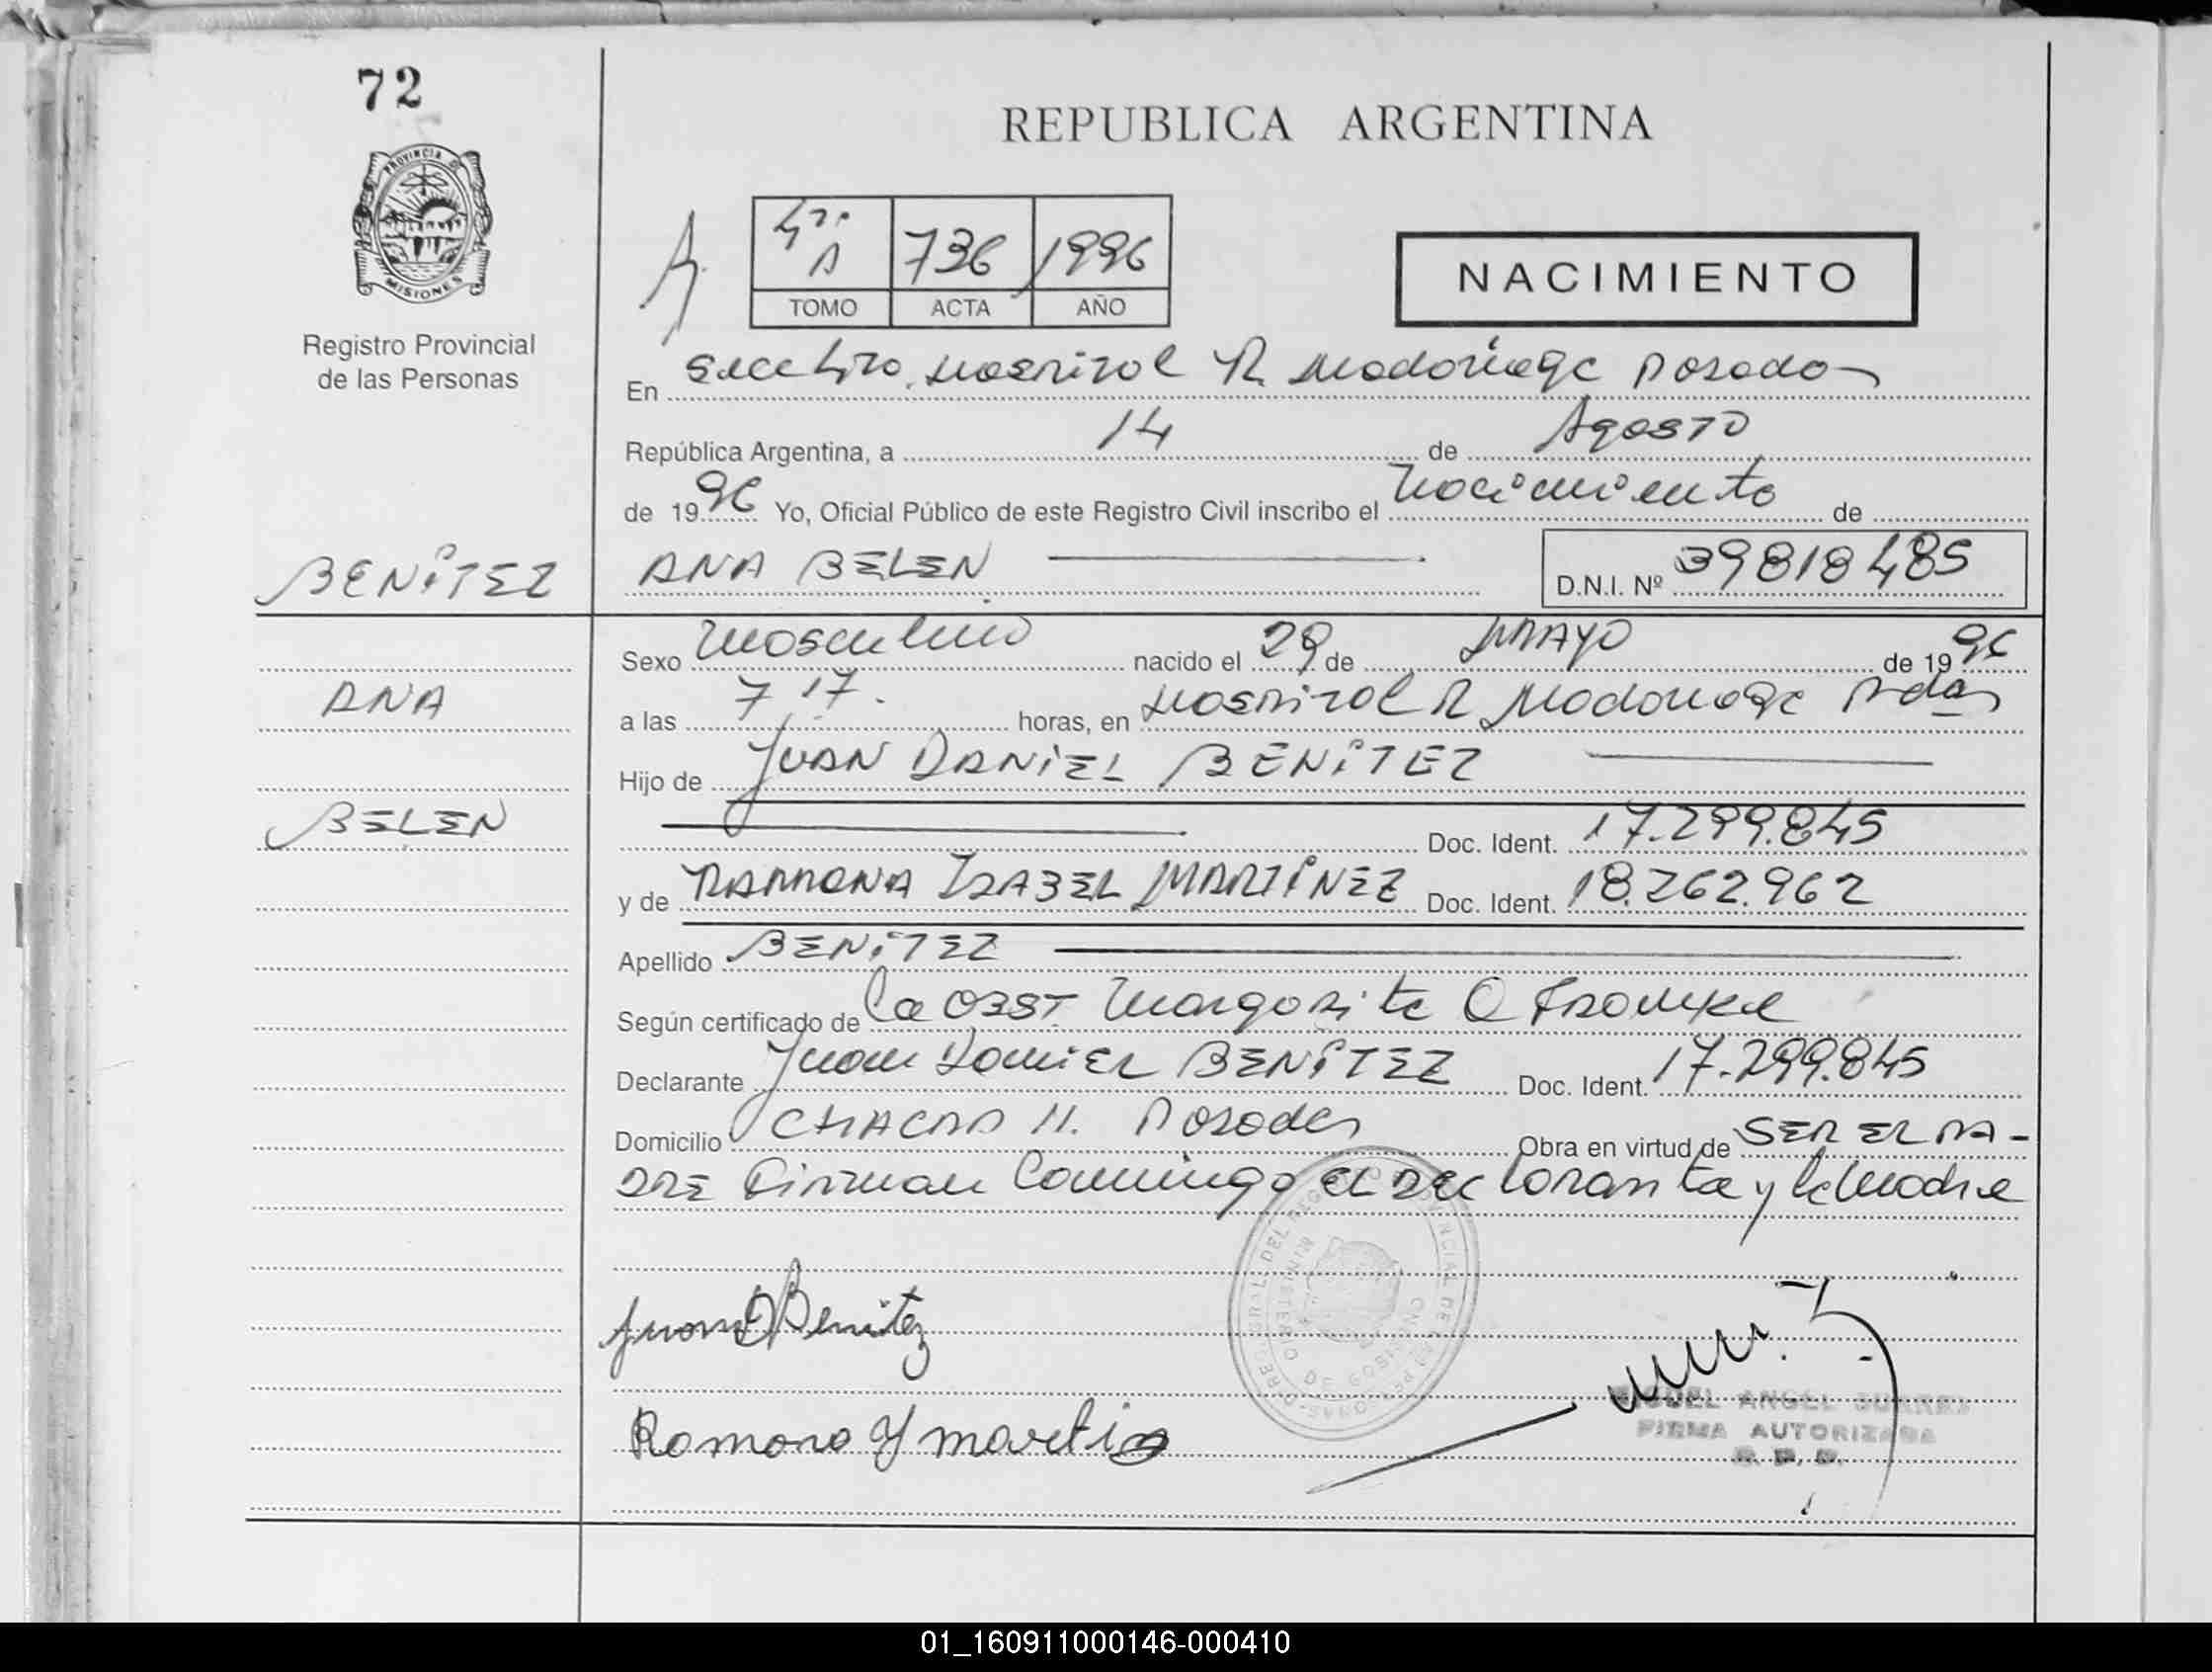 72
PROVINCIA DE
MISIONES
Registro Provincial
de las Personas
REPUBLICA ARGENTINA
A
4ta A 736 1996
TOMO ACTA AÑO
NACIMIENTO
En Secc 4ta. Hospital R Madariaga Posadas
República Argentina, a 14 de Agosto
de 1996 Yo, Oficial Público de este Registro Civil inscribo el Nacimiento de
BENÍTEZ ANA BELEN D.N.I. Nº 39818485
Sexo Masculino nacido el 29 de MAYO de 1996
ANA
a las 7 17. horas, en Hospital R Madariaga Pdas
Hijo de JUAN DANIEL BENÍTEZ
BELEN
Doc. Ident. 17.299.845
y de RAMONA ISABEL MARTÍNEZ Doc. Ident. 18.262.962
Apellido BENÍTEZ
Según certificado de La OBST Margarita Q
Declarante Juan Daniel BENÍTEZ Doc. Ident. 17.299.845
Domicilio CHACRA 11. Posadas Obra en virtud de SER EL PA-
DRE Firman Conmingo el Declarante y la Madre
Juan D Benitez
Ramona Y
MIGUEL ANGEL SUAREZ
FIRMA AUTORIZADA
R. P. P.
01_160911000146-000410